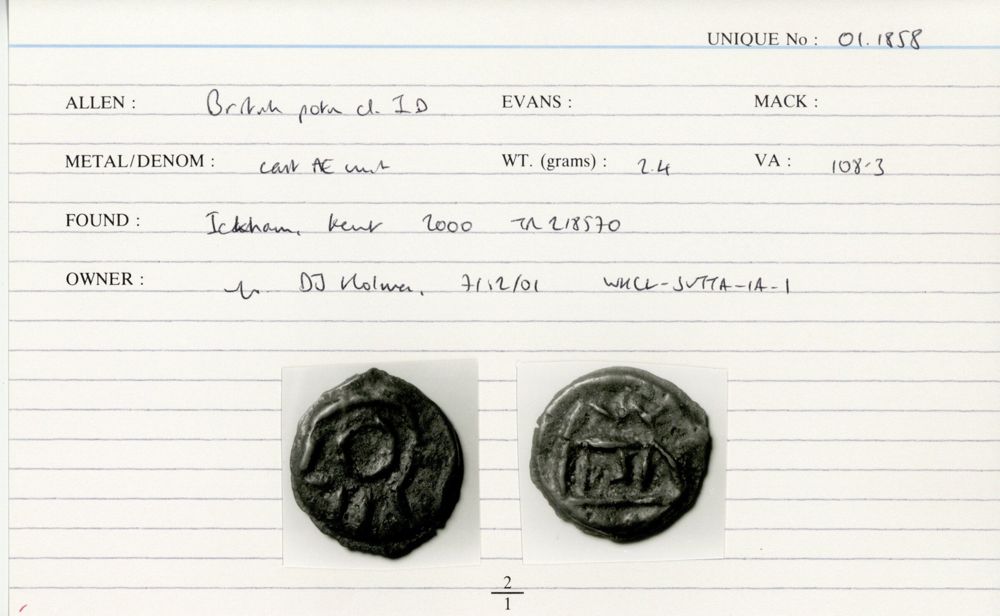 UNIQUE No : 01.1858
ALLEN : British potin cl. I D EVANS : MACK :
METAL/DENOM : cast AE unit WT. (grams) : 2.4 VA : 108-3
FOUND : Ickham, Kent 2000 TR 218570
OWNER : DJ Holman, 7/12/01
2
1